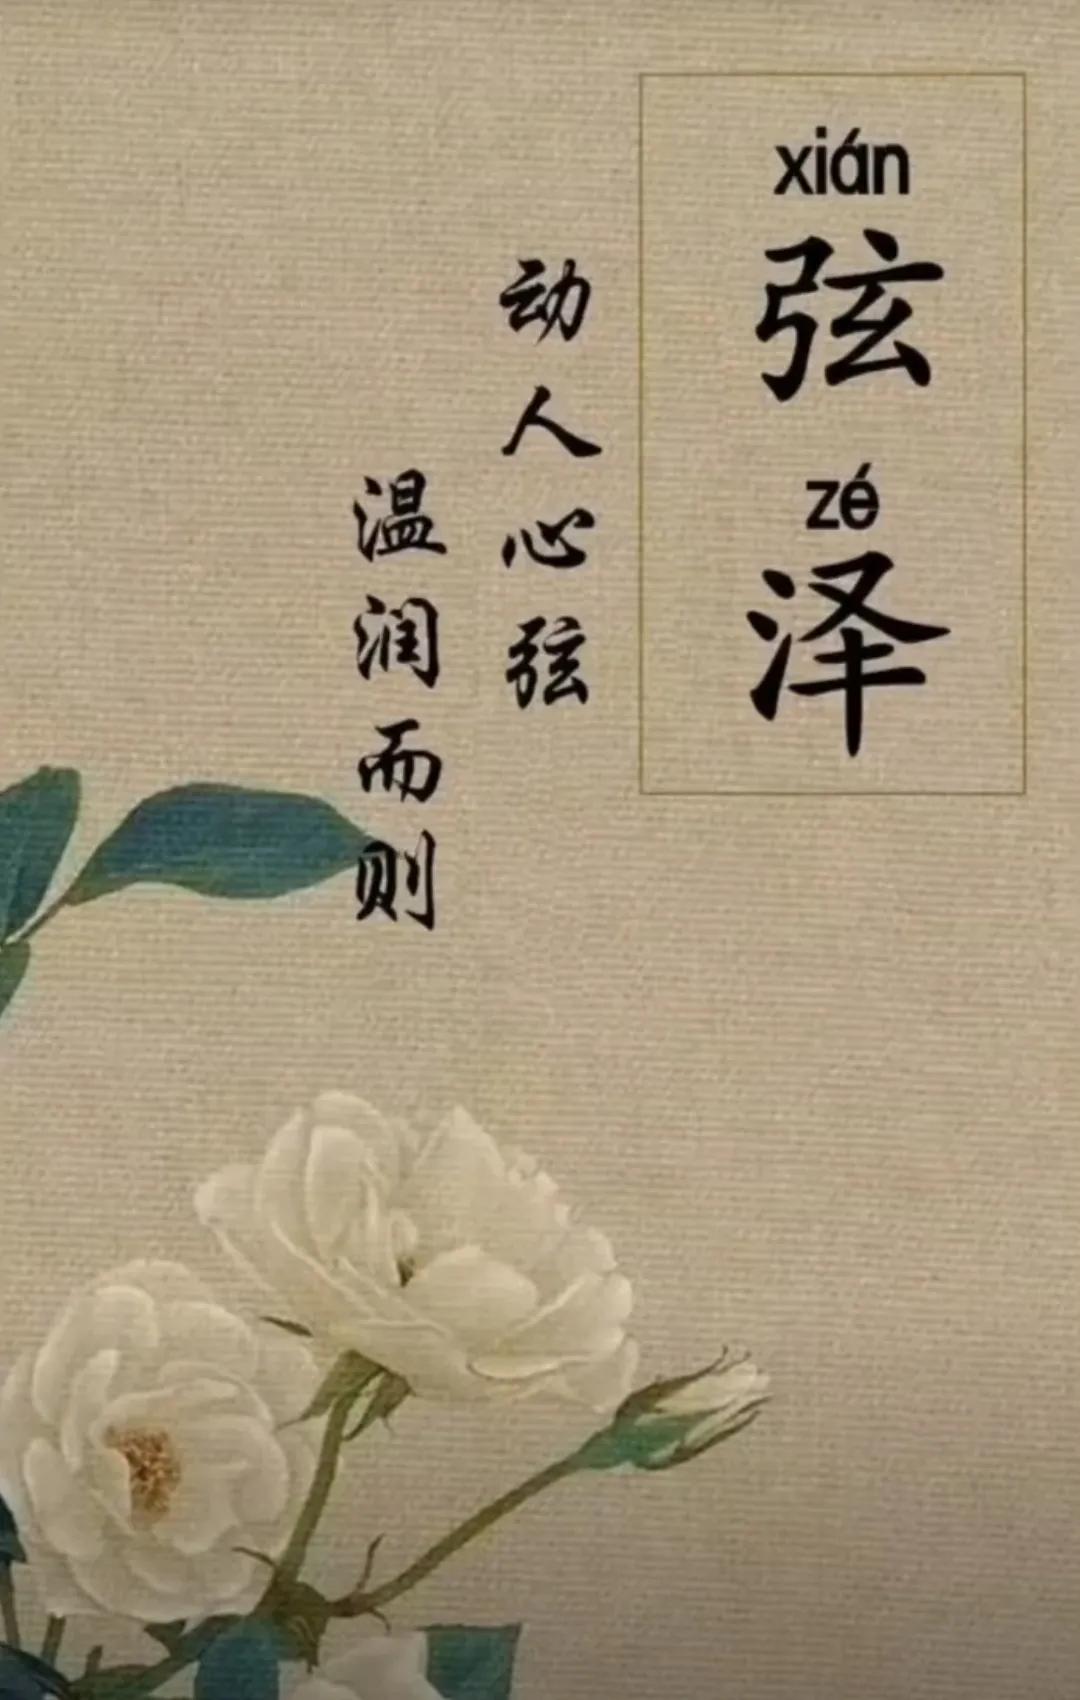 xián
弦
zé
泽
动人心弦
温润而则